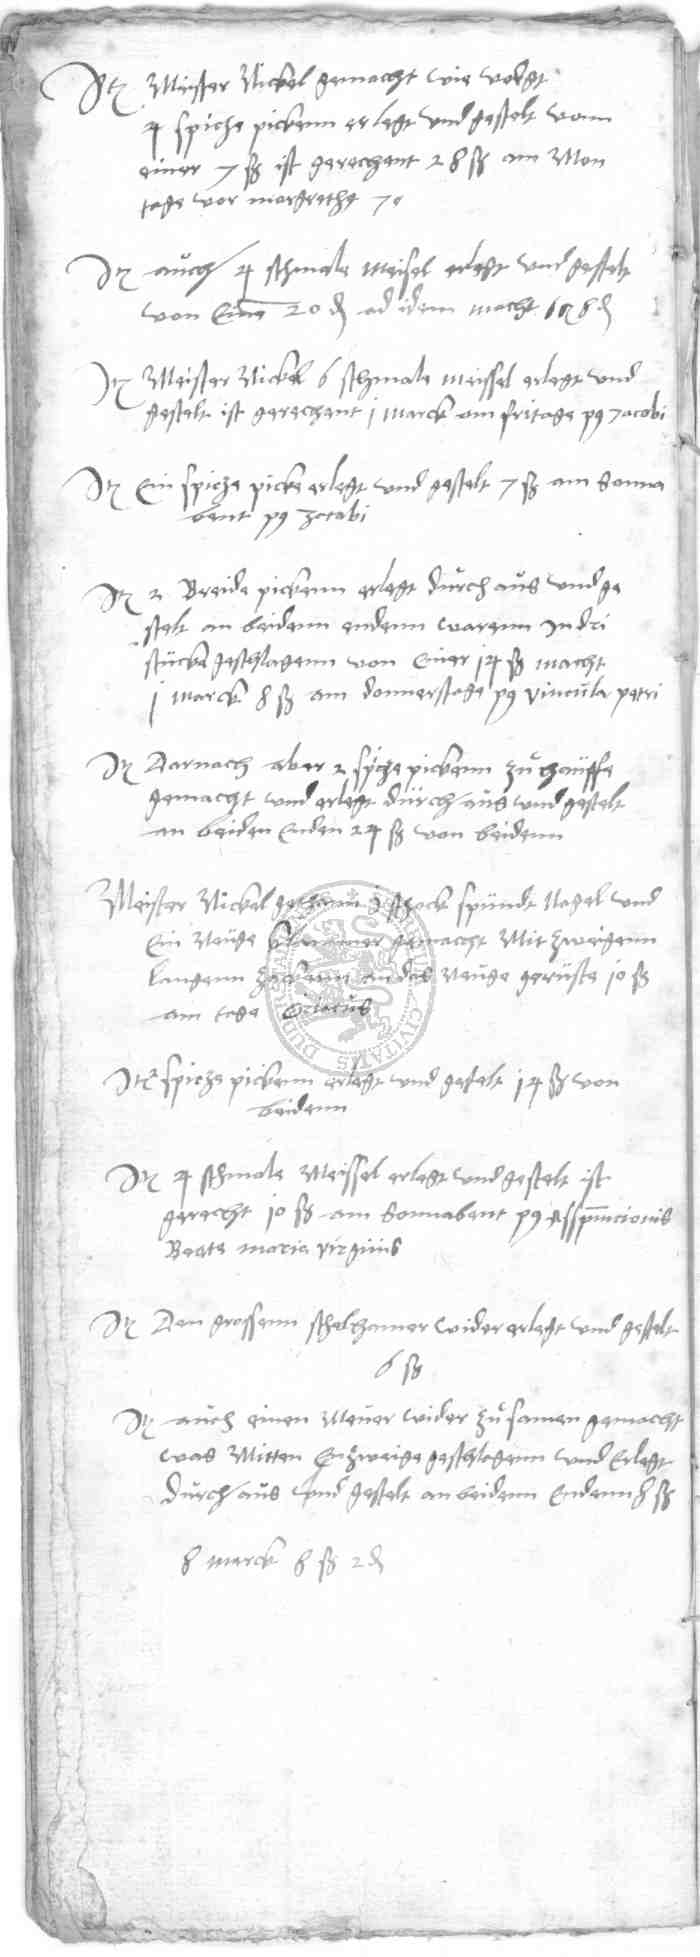 Itz Meister Nickel gemacht wie volgt
4 spicze pickenn erlegt und gestelt vonn
einer 7 ß ist gerechent 28 ß am Mon
tage vor margrethe
Itz auch 4 schmale meisel erlegt und gestelt
von Einem 20 d ad idem macht
Itz Meister Nickel 6 schmale meissel erlegt und
gestelt ist gerechent j marck am fritage p9 Jacobi
Itz Ein spicze picke erlegt und gestelt 7 ß am Sonna
bent p9 Jacobi
Itz 2 Breide pickenn erlegt durch aus und ge
stelt an beidenn endenn warenn In dri
stucke geschlagenn von Einer j4 ß macht
j marck 8 ß am donnerstage p9 vincula petri
Itz Darnach aber 2 spicze pickenn zu hauffe
gemacht und erlegt durch aus und gestelt
an beiden Enden 24 ß von beidenn
Meister Nickel j schock spundt Nagel und
Ein Neuge gemacht Mit zweigenn
langenn an das Neuge geruste jo ß
am tage
Itz 2 spicze pickenn erlegt und gestelt j4 ß von
beidenn
Itz 4 schmale Meissel erlegt und gestelt ist
gerecht jo ß am Sonnabent p9 Assumcionis
Beate marie virginis
Itz Den grossenn schelhamer wider erlegt und gestelt
6 ß
Itz auch einen wider zu samen gemacht
was Mitten Enzweige geschlagenn und Erlegt
durch aus und gestelt an beidenn Endenn 8 ß
8 marck 8 ß 2 d
CIVITATIS DUDER